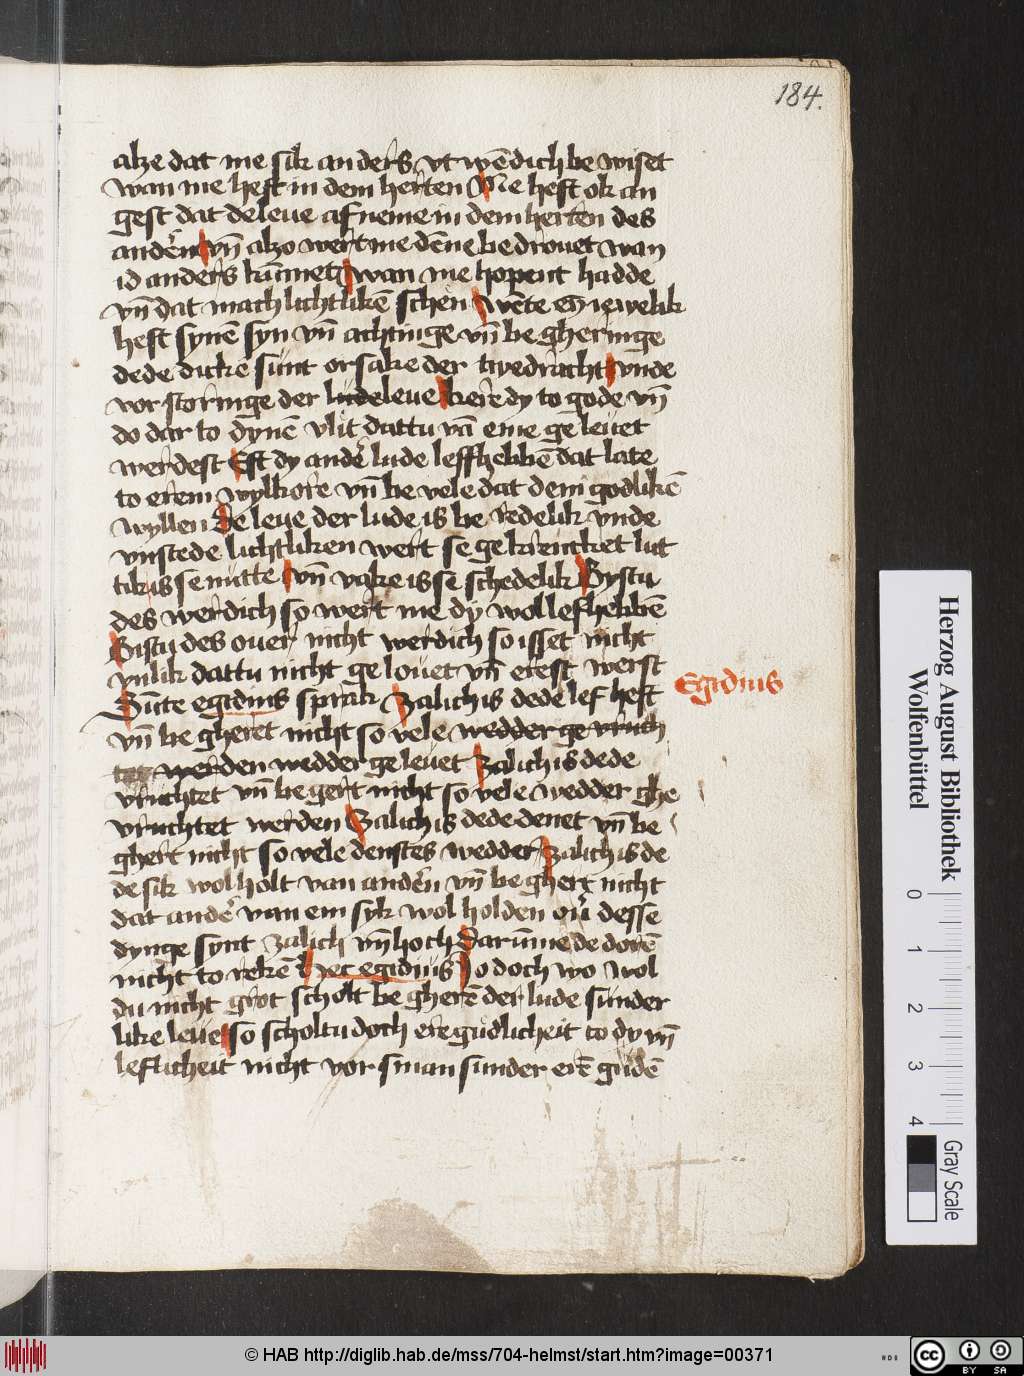 184.
alze dat me sik anders vt wēdich be wiset
wan me heft in dem herten Me heft ok an
gest dat de leue af neme in dem herten des
anderen vn̄ alzo wert me dēne be drouet wan
id anders kūmet wan me hopent hadde
vn̄ dat mach lichtlikē schen wēte ey iewelik
heft synē syn vn̄ achtinge vn̄ be gheringe
dede dicke sunt orsake der twedracht vnde
vor storinge der lude leue kere dy to gode vn̄
do dar to dynē vlit dattu vā eme ge leuet
werdest Eft dy ander lude leff hebbē dat late
to erem wylkore vn̄ be vele dat dem godlikē
wyllen De leue der lude is be redelik vnde
vnstede lichtliken wert se ge krencket lut
tik is se nutte vn̄ vake is se schedelik Bystu
des werdich so wert me dy wol lef hebbē
Bistu des ouer nicht werdich so isset nicht
vnlik dattu nicht ge louet vn̄ erest werst
Sūte egidius sprak Zalich is dede lef heft
Egidius
vn̄ be gheret nicht so vele wedder ge vruch
tet werden wedder ge leuet Zalich is dede
vruchtet vn̄ be gert nicht so vele wedder ghe
vruchtet werden Salich is dede denet vn̄ be
ghert nicht so vele denstes wedder Zalich is de
de sik wol holt van andern vn̄ be ghert nicht
dat ander van em syk wol holden ouer desse
dynge synt zalich vn̄ hoch Darūme de dorē
nicht to rekē hec egidius Jo doch wo wol
du nicht grot scholt be gherē der lude sunder
like leue so scholtu doch ere gudlicheit to dy vn̄
leflicheit nicht vor sman sunder erē gudē
Herzog August Bibliothek
Wolfenbüttel
0 1 2 3 4
Gray Scale
© HAB http://diglib.hab.de/mss/704-helmst/start.htm?image=00371
cc BY SA